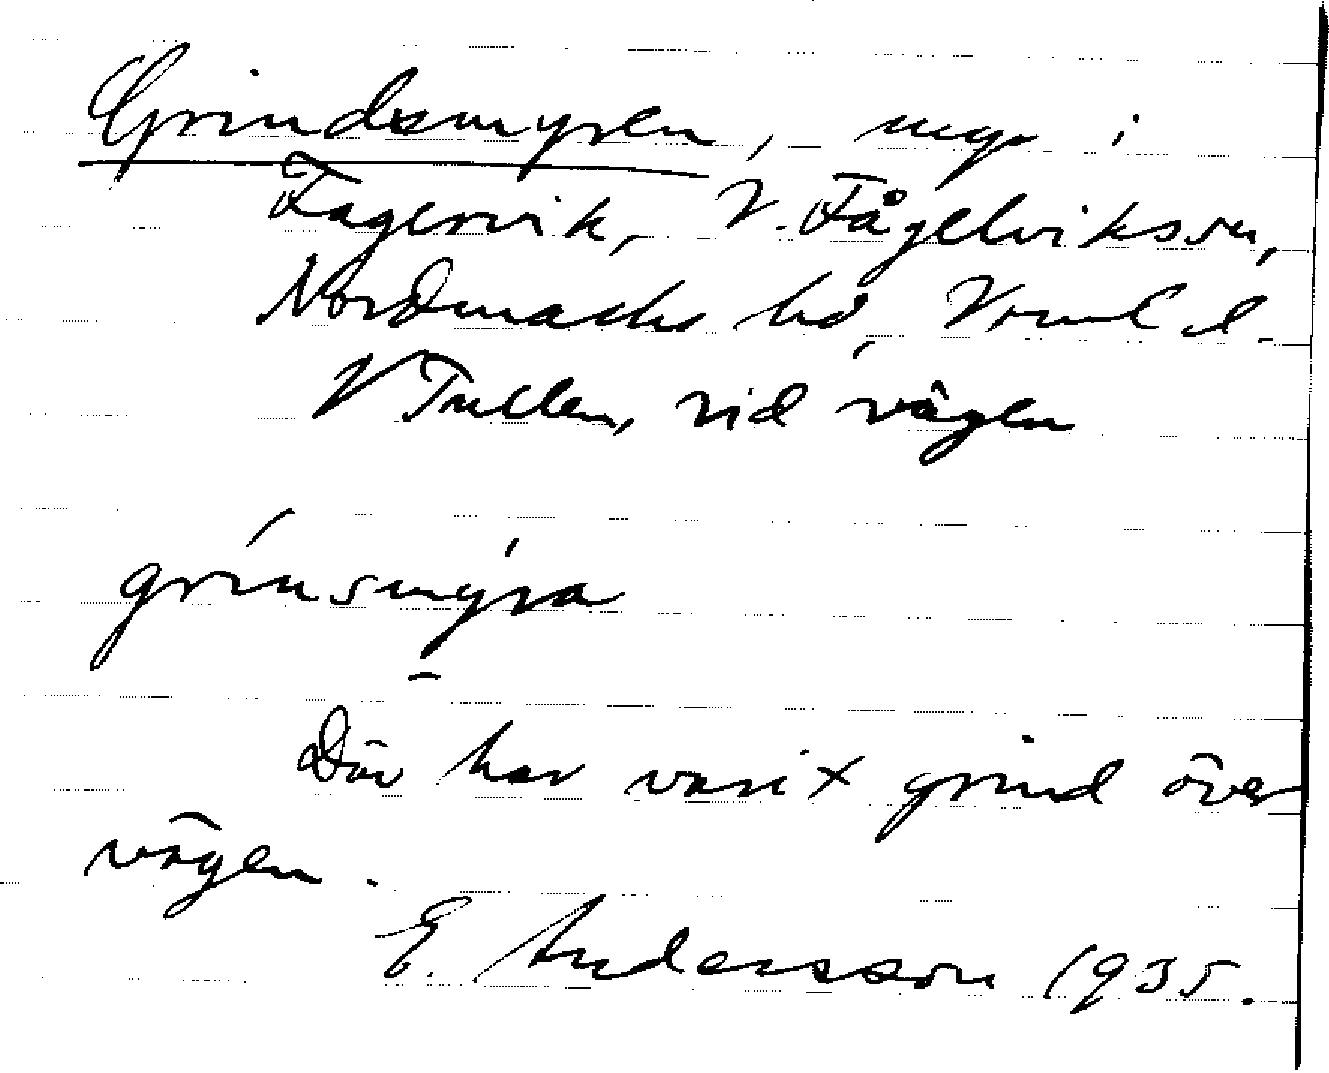 Grindsmyren, myr i
Fagervik, V. Fågelvikssn,
Nordmarks hd, Vrml l.
V Tullen, vid vägen
grinsmyra
Där har varit grind över
vägen.
E. Andersson 1935.